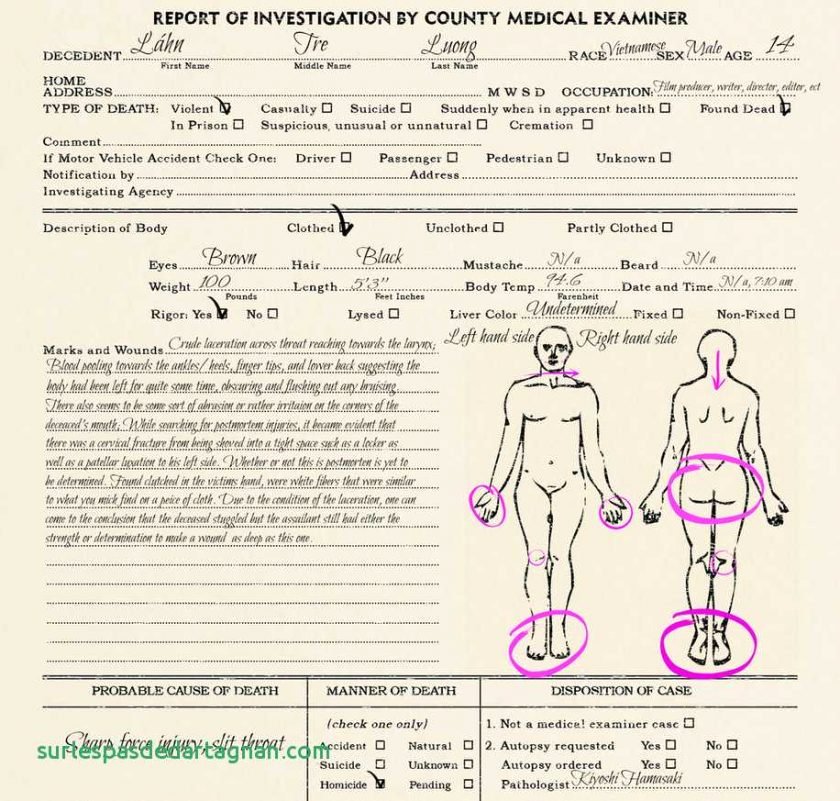 REPORT OF INVESTIGATION BY COUNTY MEDICAL EXAMINER
DECEDENT Láhn Tre Luong RACE Vietnamese SEX Male AGE 14
First Name Middle Name Last Name
HOME
ADDRESS M W S D OCCUPATION: Film producer, writer, director, editor, ect
TYPE OF DEATH: Violent Casualty Suicide Suddenly when in apparent health Found Dead
In Prison Suspicious, unusual or unnatural Cremation
Comment
If Motor Vehicle Accident Check One: Driver Passenger Pedestrian Unknown
Notification by Address
Investigating Agency
Description of Body Clothed Unclothed Partly Clothed
Eyes Brown Hair Black Mustache N/a Beard N/a
Weight 100 Length 5'3" Body Temp 94.6 Date and Time N/a, 7:10 am
Pounds Feet Inches Farenheit
Rigor: Yes No Lysed Liver Color Undetermined Fixed Non-Fixed
Left hand side Right hand side
Marks and Wounds Crude laceration across throat reaching towards the larynx;
Blood pooling towards the ankles/ heels, finger tips, and lower back suggesting the
body had been left for quite some time, obscuring and flushing out any bruising.
There also seems to be some sort of abrasion or rather irritaion on the corners of the
deceased's mouth; While searching for postmortem injuries, it became evident that
there was a cervical fracture from being shoved into a tight space such as a locker as
well as a patellar luxation to his left side. Whether or not this is postmorten is yet to
be determined. Found clutched in the victims hand, were white fibers that were similar
to what you mick find on a peice of cloth. Due to the condition of the laceration, one can
come to the conclusion that the deceased stuggled but the assailant still had either the
strength or determination to make a wound as deep as this one.
PROBABLE CAUSE OF DEATH MANNER OF DEATH DISPOSITION OF CASE
(check one only) 1. Not a medical examiner case
Sharp force injury, slit throat
surlespasdedartagnan.com
Accident Natural 2. Autopsy requested Yes No
Suicide Unknown Autopsy ordered Yes No
Homicide Pending Pathologist Kiyoshi Hamasaki